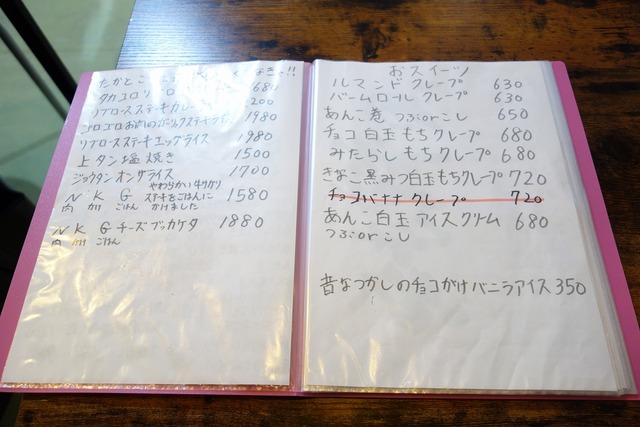 たかとこ
タカユロリロ 680
リブロースステーキカレー 200
ゴロゴロお肉のガーリックステーキ 1980
リブロースステーキエッグライス 1980
上タン塩焼き 1500
ジョウタンオンザライス 1700
NKG やわらかい牛カリ ステーキをごはんに かけました 1580
肉 かけ ごはん
NKG チーズブッカケタ 1880
肉 かけ ごはん
おスイーツ
ルマンドクレープ 630
バームロールクレープ 630
あんこ巻 つぶorこし 650
チョコ白玉もちクレープ 680
みたらしもちクレープ 680
きなこ黒みつ白玉もちクレープ 720
チョコバナナクレープ 720
あんこ白玉アイスクリーム 680
つぶorこし
昔なつかしのチョコがけバニラアイス 350